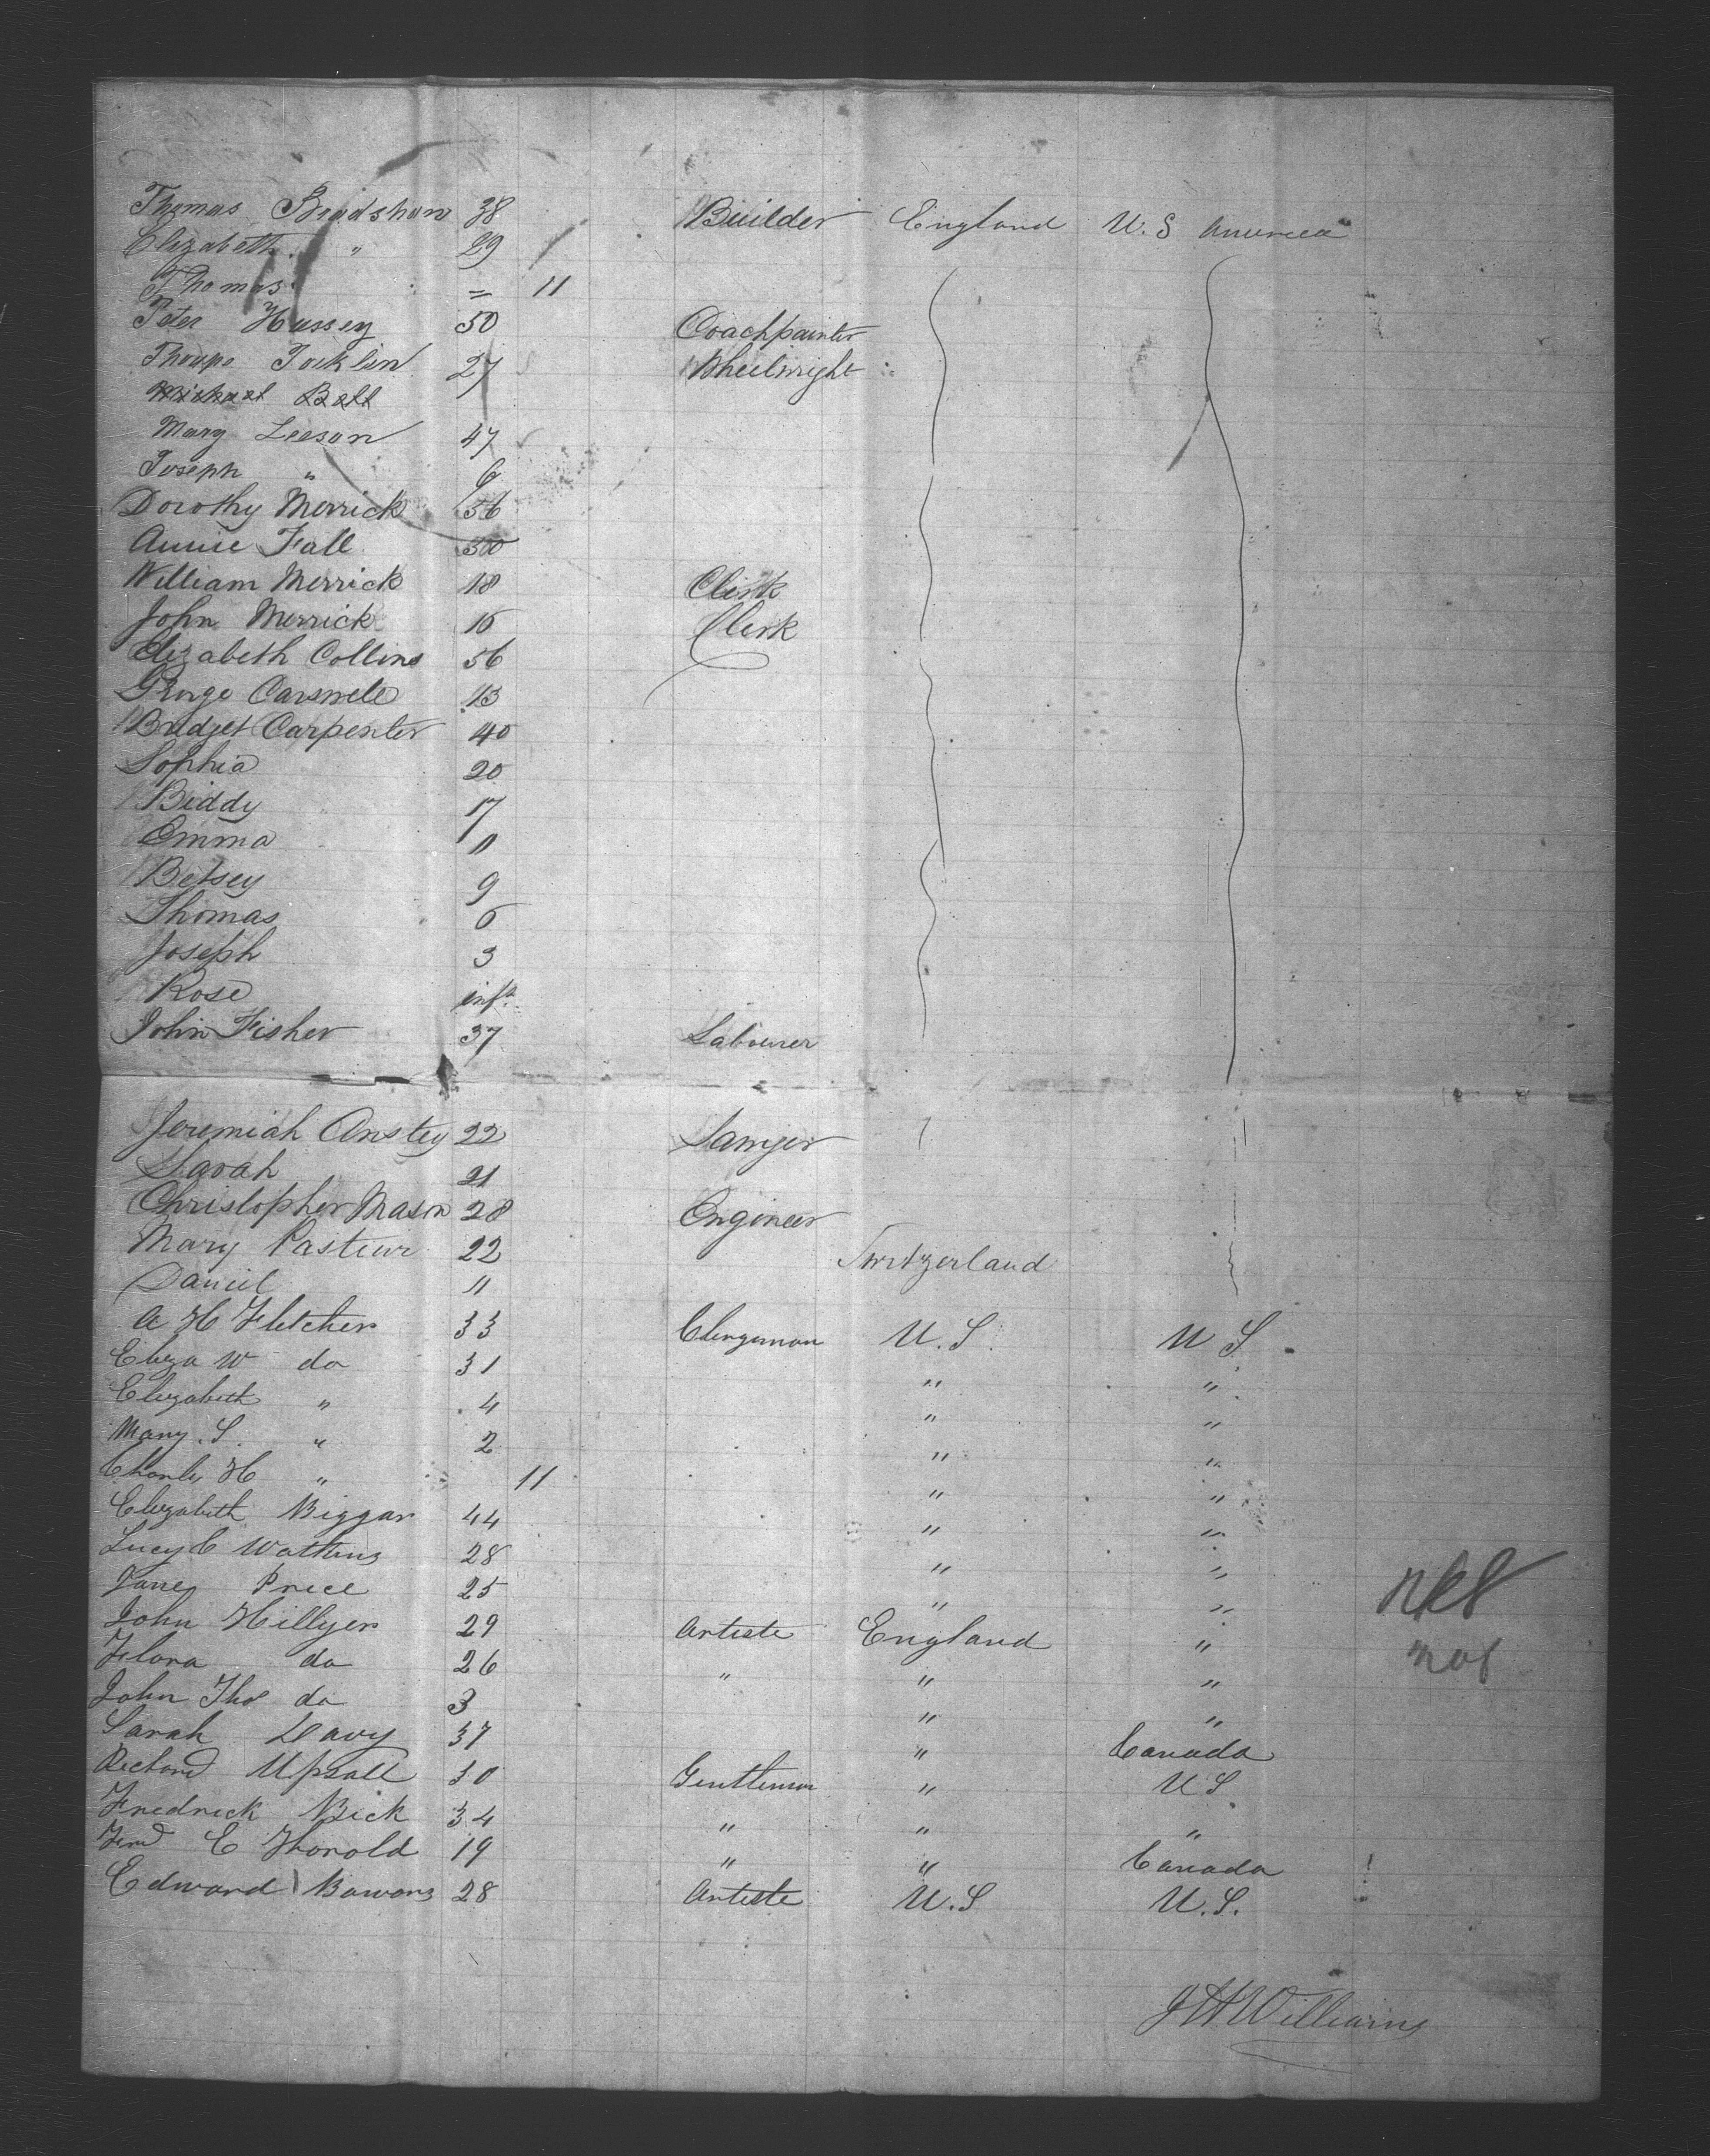 Thomas Bradshaw 38 Builder England U.S America
Elizabeth " 29
Thomas = 11
Peter Hussey 50 Coachpainter
Jocklin 27 Wheelwright
Michael Bell
Mary Leeson 47
Joseph " 6
Dorothy Merrick 56
Annie Fall 30
William Merrick 18 Clerk
John Merrick 16 Clerk
Elizabeth Collins 56
George 13
Bridget Carpenter 40
Sophia 20
Biddy 17
Emma 11
Betsey 9
Thomas 6
Joseph 3
Rose inft.
John Fisher 37 Labourer
Jeremiah Anstey 22 Sawyer
Sarah 21
Christopher Mason 28 Engineer
Mary Pasteur 22 Switzerland
Daniel 11
A H Fletcher 33 Clergyman U.S. U S.
Eliza W do 31 " "
Elizabeth " 4 " "
Mary S. " 2 " "
Charles H " 11 " "
Elizabeth Biggar 44 " "
Lucy C Watkins 28 " "
Price 25 " "
John Hillyer 29 Artiste England "
Flora do 26 " " "
John Thos do 3 " "
Sarah Leavy 37 " Canada
Richard Upsall 30 Gentleman " U S.
Fredrick Bick 34 " " "
E Thorold 19 " " Canada
Edward Bowers 28 Artiste U.S U.S.
J H Williams